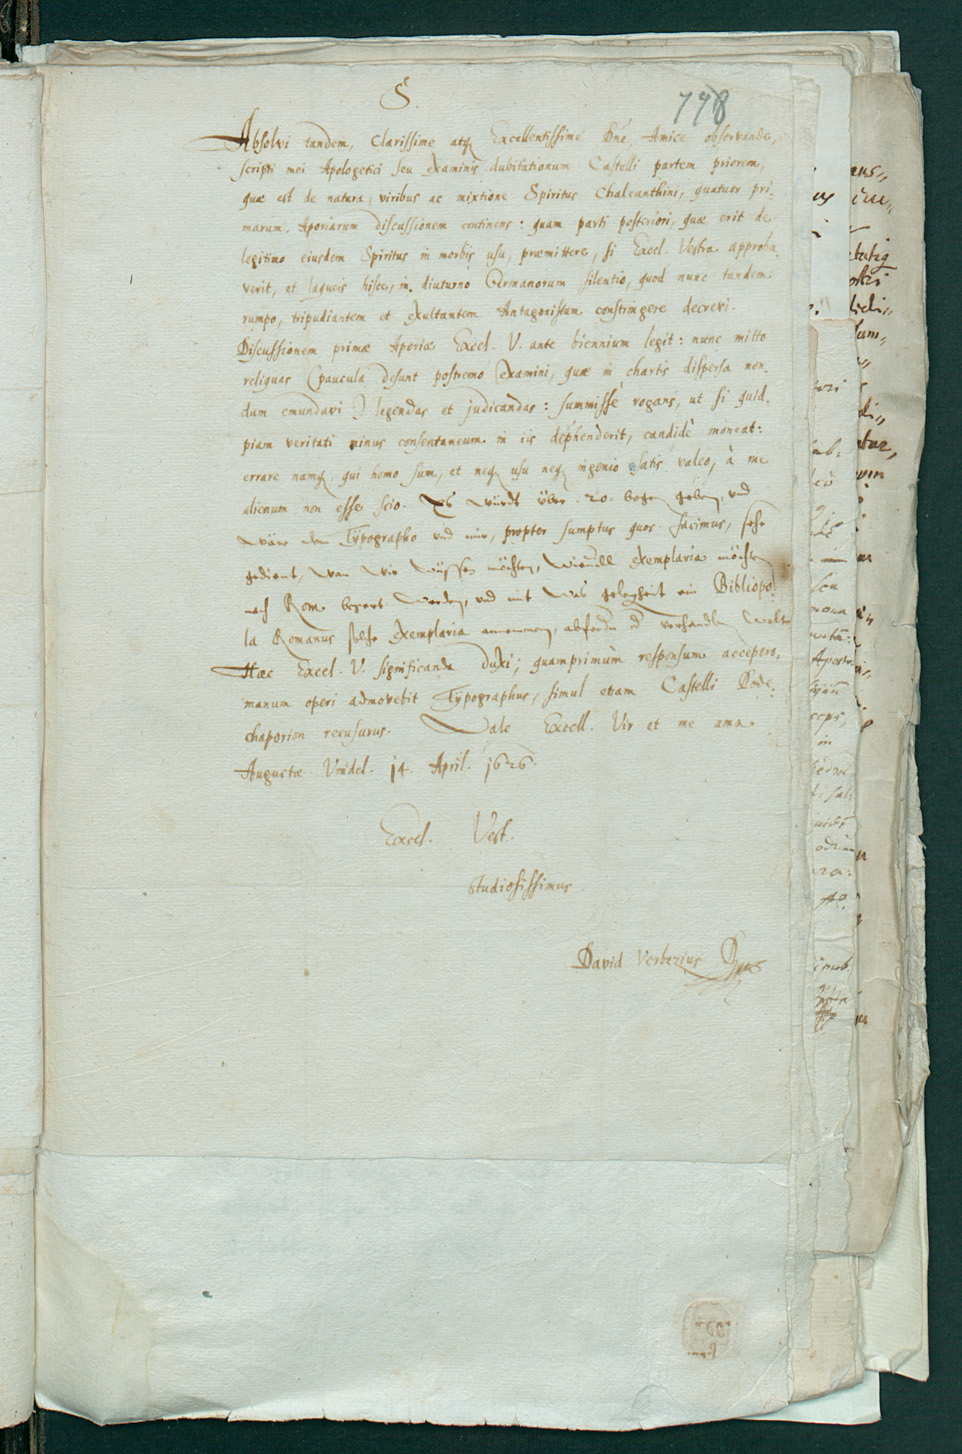 S.
778
Absolvi tandem, Clarissime atq Excellentissime Dne, Amice observande,
scripti mei Apologetici seu examinis dubitationum Castelli partem priorem,
quæ est de natura, viribus ac mixtione Spiritus Chalcanthini, quatuor pri-
marum Aporiarum discussionem continens: quam parti posteriori, quæ erit de
legitimo eiusdem Spiritus in morbis usu, præmittere, si Excel. Vestra approba
verit, et laqueis hisce, in diuturno Germanorum silentio, quod nunc tandem
rumpo, tripudiantem et exultantem Antagonistam constringere decrevi.
Discussionem primæ Aporiæ Excel. V. ante biennium legit: nunc mitto
reliquas (paucula desunt postremo Examini, quæ in chartis dispersa non-
dum emundavi) legendas et judicandas: summissè rogans, ut si quid-
piam veritati minus consentaneum in iis dephenderit, candidè moneat:
errare namq, qui homo sum, et neq usu neq ingenio satis valeo, à me
alienum non esse scio. Es würdt über 20. bogen geben, und
wäre dem Typographo und mir, propter sumptus quos facimus, sehr
gedient, wan wir wüssen möchten, wieuill exemplaria möchten
nach Rom begert werden, und mit was gelegheit ein Bibliopo-
la Romanus solche exemplaria annemmen, abfordn verhandlen wolte
Hæc Excel. V. significanda duxi; quamprimùm responsum accepero,
manum operi admovebit Typographus, simul etiam Castelli
chaporion recusurus. Vale Excell. Vir et me ama.
Augustæ Vindel. 14. April. 1626.
Excel. Vest.
Studiosissimus
David Verbezius D